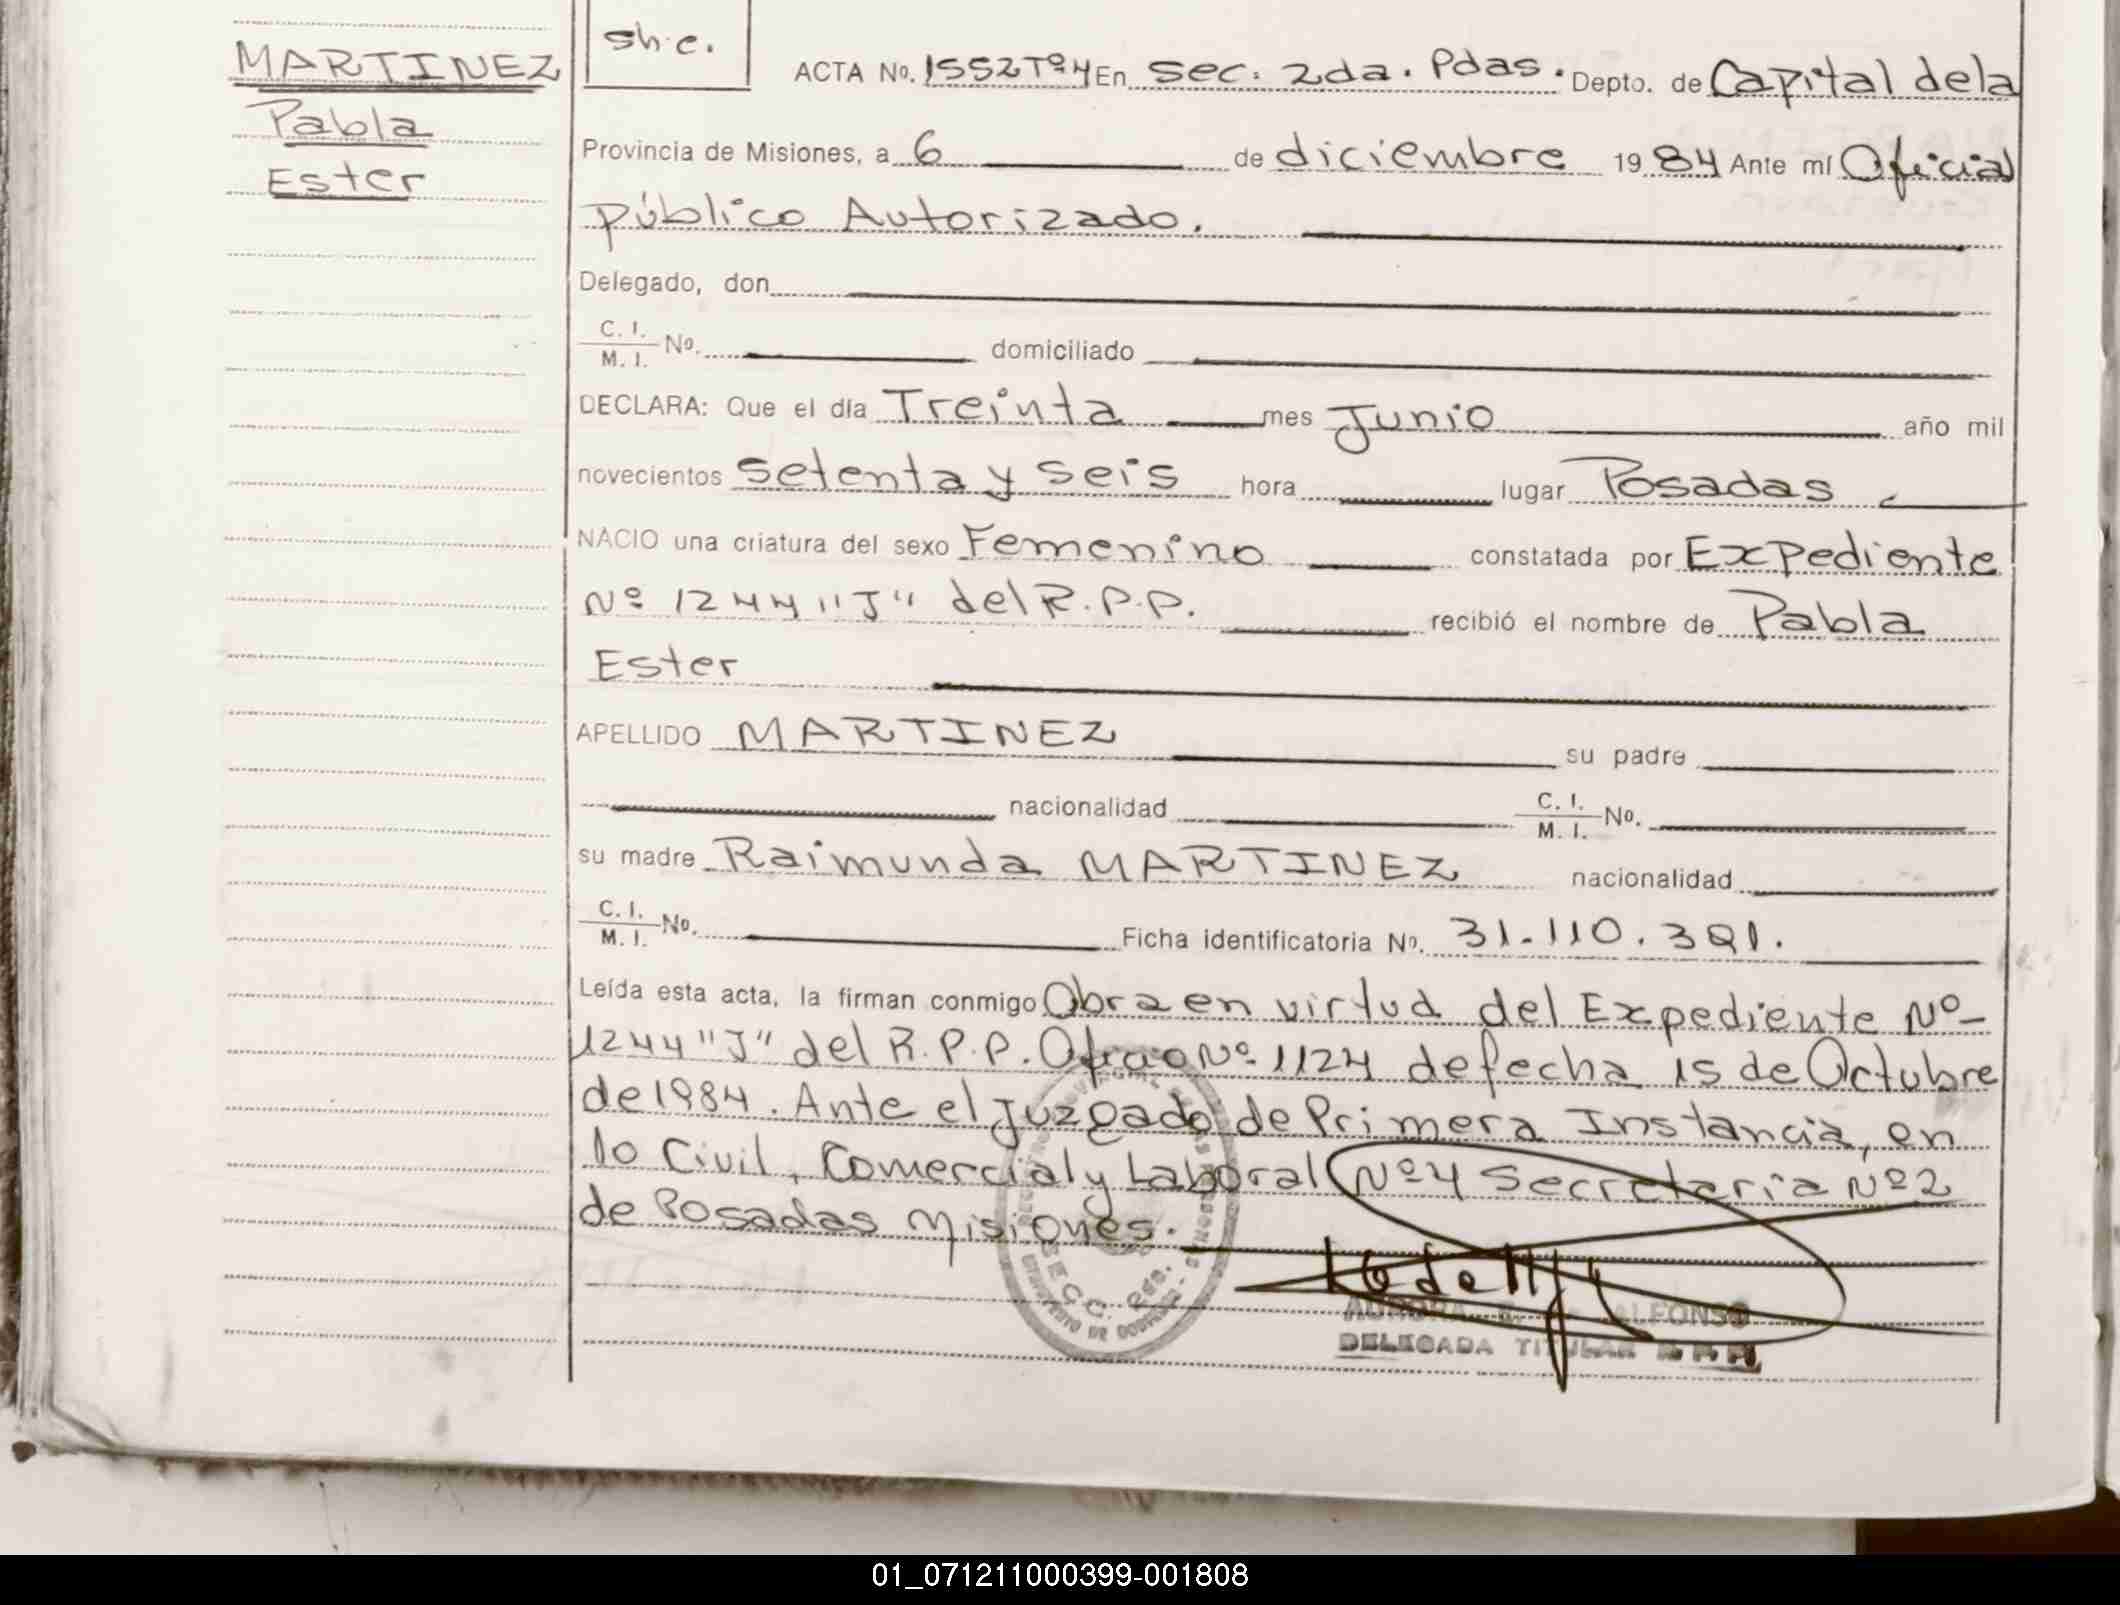 MARTINEZ
Pabla
Ester
sh.c.
ACTA No. 1552 Tº 4 En sec. 2da. Pdas. Depto. de Capital de la
Provincia de Misiones, a 6 de diciembre 1984 Ante mí Oficial
Público Autorizado.
Delegado, don
C. I.
M. I. No. domiciliado
DECLARA: Que el día Treinta mes Junio año mil
novecientos setenta y seis hora lugar Posadas
NACIO una criatura del sexo Femenino constatada por Expediente
Nº 1244 "J" del R.P.P. recibió el nombre de Pabla
Ester
APELLIDO MARTINEZ su padre
nacionalidad C. I. M. I. No.
su madre Raimunda MARTINEZ nacionalidad
C. I. M. I. No. Ficha identificatoria No. 31.110.391.
Leída esta acta, la firman conmigo Obra en virtud del Expediente Nº
1244 "J" del R.P.P. Oficio Nº 1124 de fecha 15 de Octubre
de 1984. Ante el Juzgado de Primera Instancia, en
lo Civil, Comercial y Laboral Nº 4 Secretaria Nº 2
de Posadas Misiones.
SECC. 2da.
AURORA ALFONSO
DELEGADA TITULAR R.P.P.
01_071211000399-001808